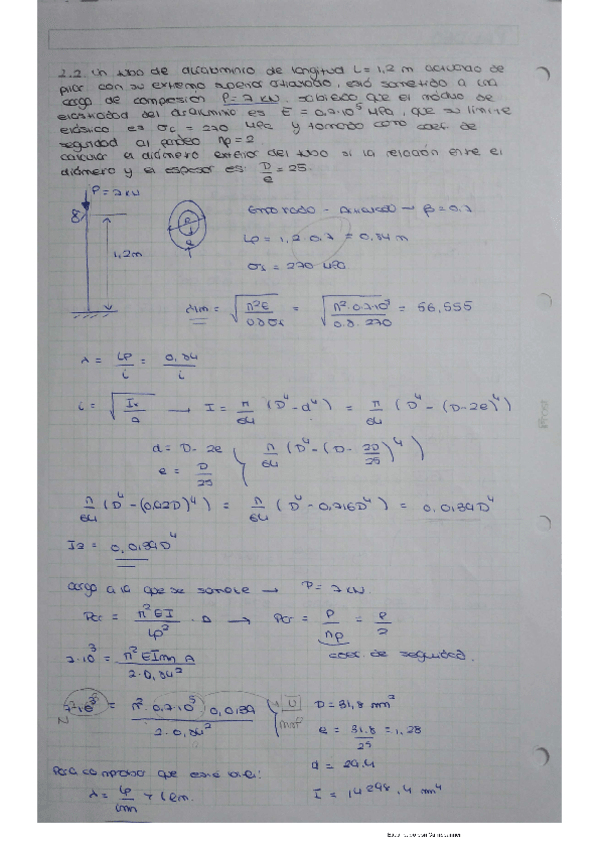 2.2. Un tubo de duraluminio de longitud L = 1,2 m actuando de
pilar con su extremo superior articulado, está sometido a una
carga de compresión P = 7 kN. sabiendo que el módulo de
elasticidad del duraluminio es E = 0,7·10⁵ MPa, que su límite
elástico es σe = 270 MPa y tomando como coef. de
seguridad al pandeo np = 2
calcular el diámetro exterior del tubo si la relación entre el
diámetro y el espesor es: D/e = 25.
P = 7 kN
1,2m
Empotrado - Articulado → β = 0.7
Lp = 1,2 · 0,7 = 0,84 m
σs = 270 MPa
λlim = √(π²E/0.8σs) = √(π² · 0.7·10⁵/0.8 · 270) = 56,555
λ = Lp/i = 0,84/i
i = √(Ix/A) → I = π/64 (D⁴ - d⁴) = π/64 (D⁴ - (D-2e)⁴)
d = D - 2e
e = D/25
π/64 (D⁴ - (D - 2D/25)⁴)
π/64 (D⁴ - (0,92D)⁴) = π/64 (D⁴ - 0,716D⁴) = 0,0139D⁴
I2 = 0,0139D⁴
carga a la que se somete → P = 7 kN.
Pcr = π²EI/Lp² · A → Pcr = P/np = P/2
coef. de seguridad.
7·10³ = π²EImin A/2·0,84²
7·10³ = π² · 0,7·10⁵ · 0,0139/2·0,84²
N
D = 31,8 mm²
e = 31.8/25 = 1,28
d = 29.4
I = 14298,4 mm⁴
Para comprobar que esto vale:
λ = Lp/imin